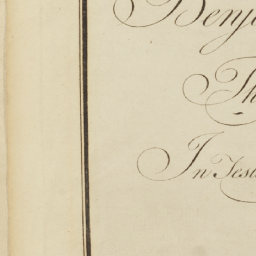 Benj
Th
In Tes